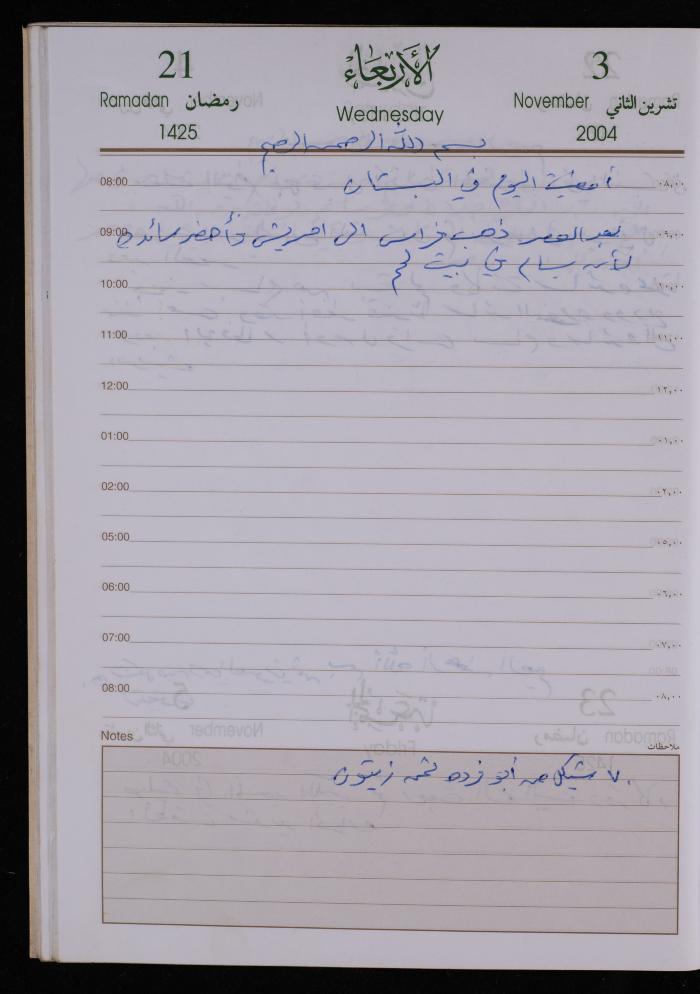 21 الأربعاء 3
Ramadan رمضان Wednesday November تشرين الثاني
1425 2004
بسم الله الرحمن الرحيم
08:00 أمضيت اليوم في البستان ٠٨,٠٠
09:00 بعد العصر ذهب فراس الى احريش وأحضر مائده ٠٩,٠٠
لأن بسام في بيت لحم
10:00 ١٠,٠٠
11:00 ١١,٠٠
12:00 ١٢,٠٠
01:00 ٠١,٠٠
02:00 ٠٢,٠٠
05:00 ٠٥,٠٠
06:00 ٠٦,٠٠
07:00 ٠٧,٠٠
08:00 ٠٨,٠٠
Notes ملاحظات
٧٠ شيكل من أبو فرده ثمن زيتون